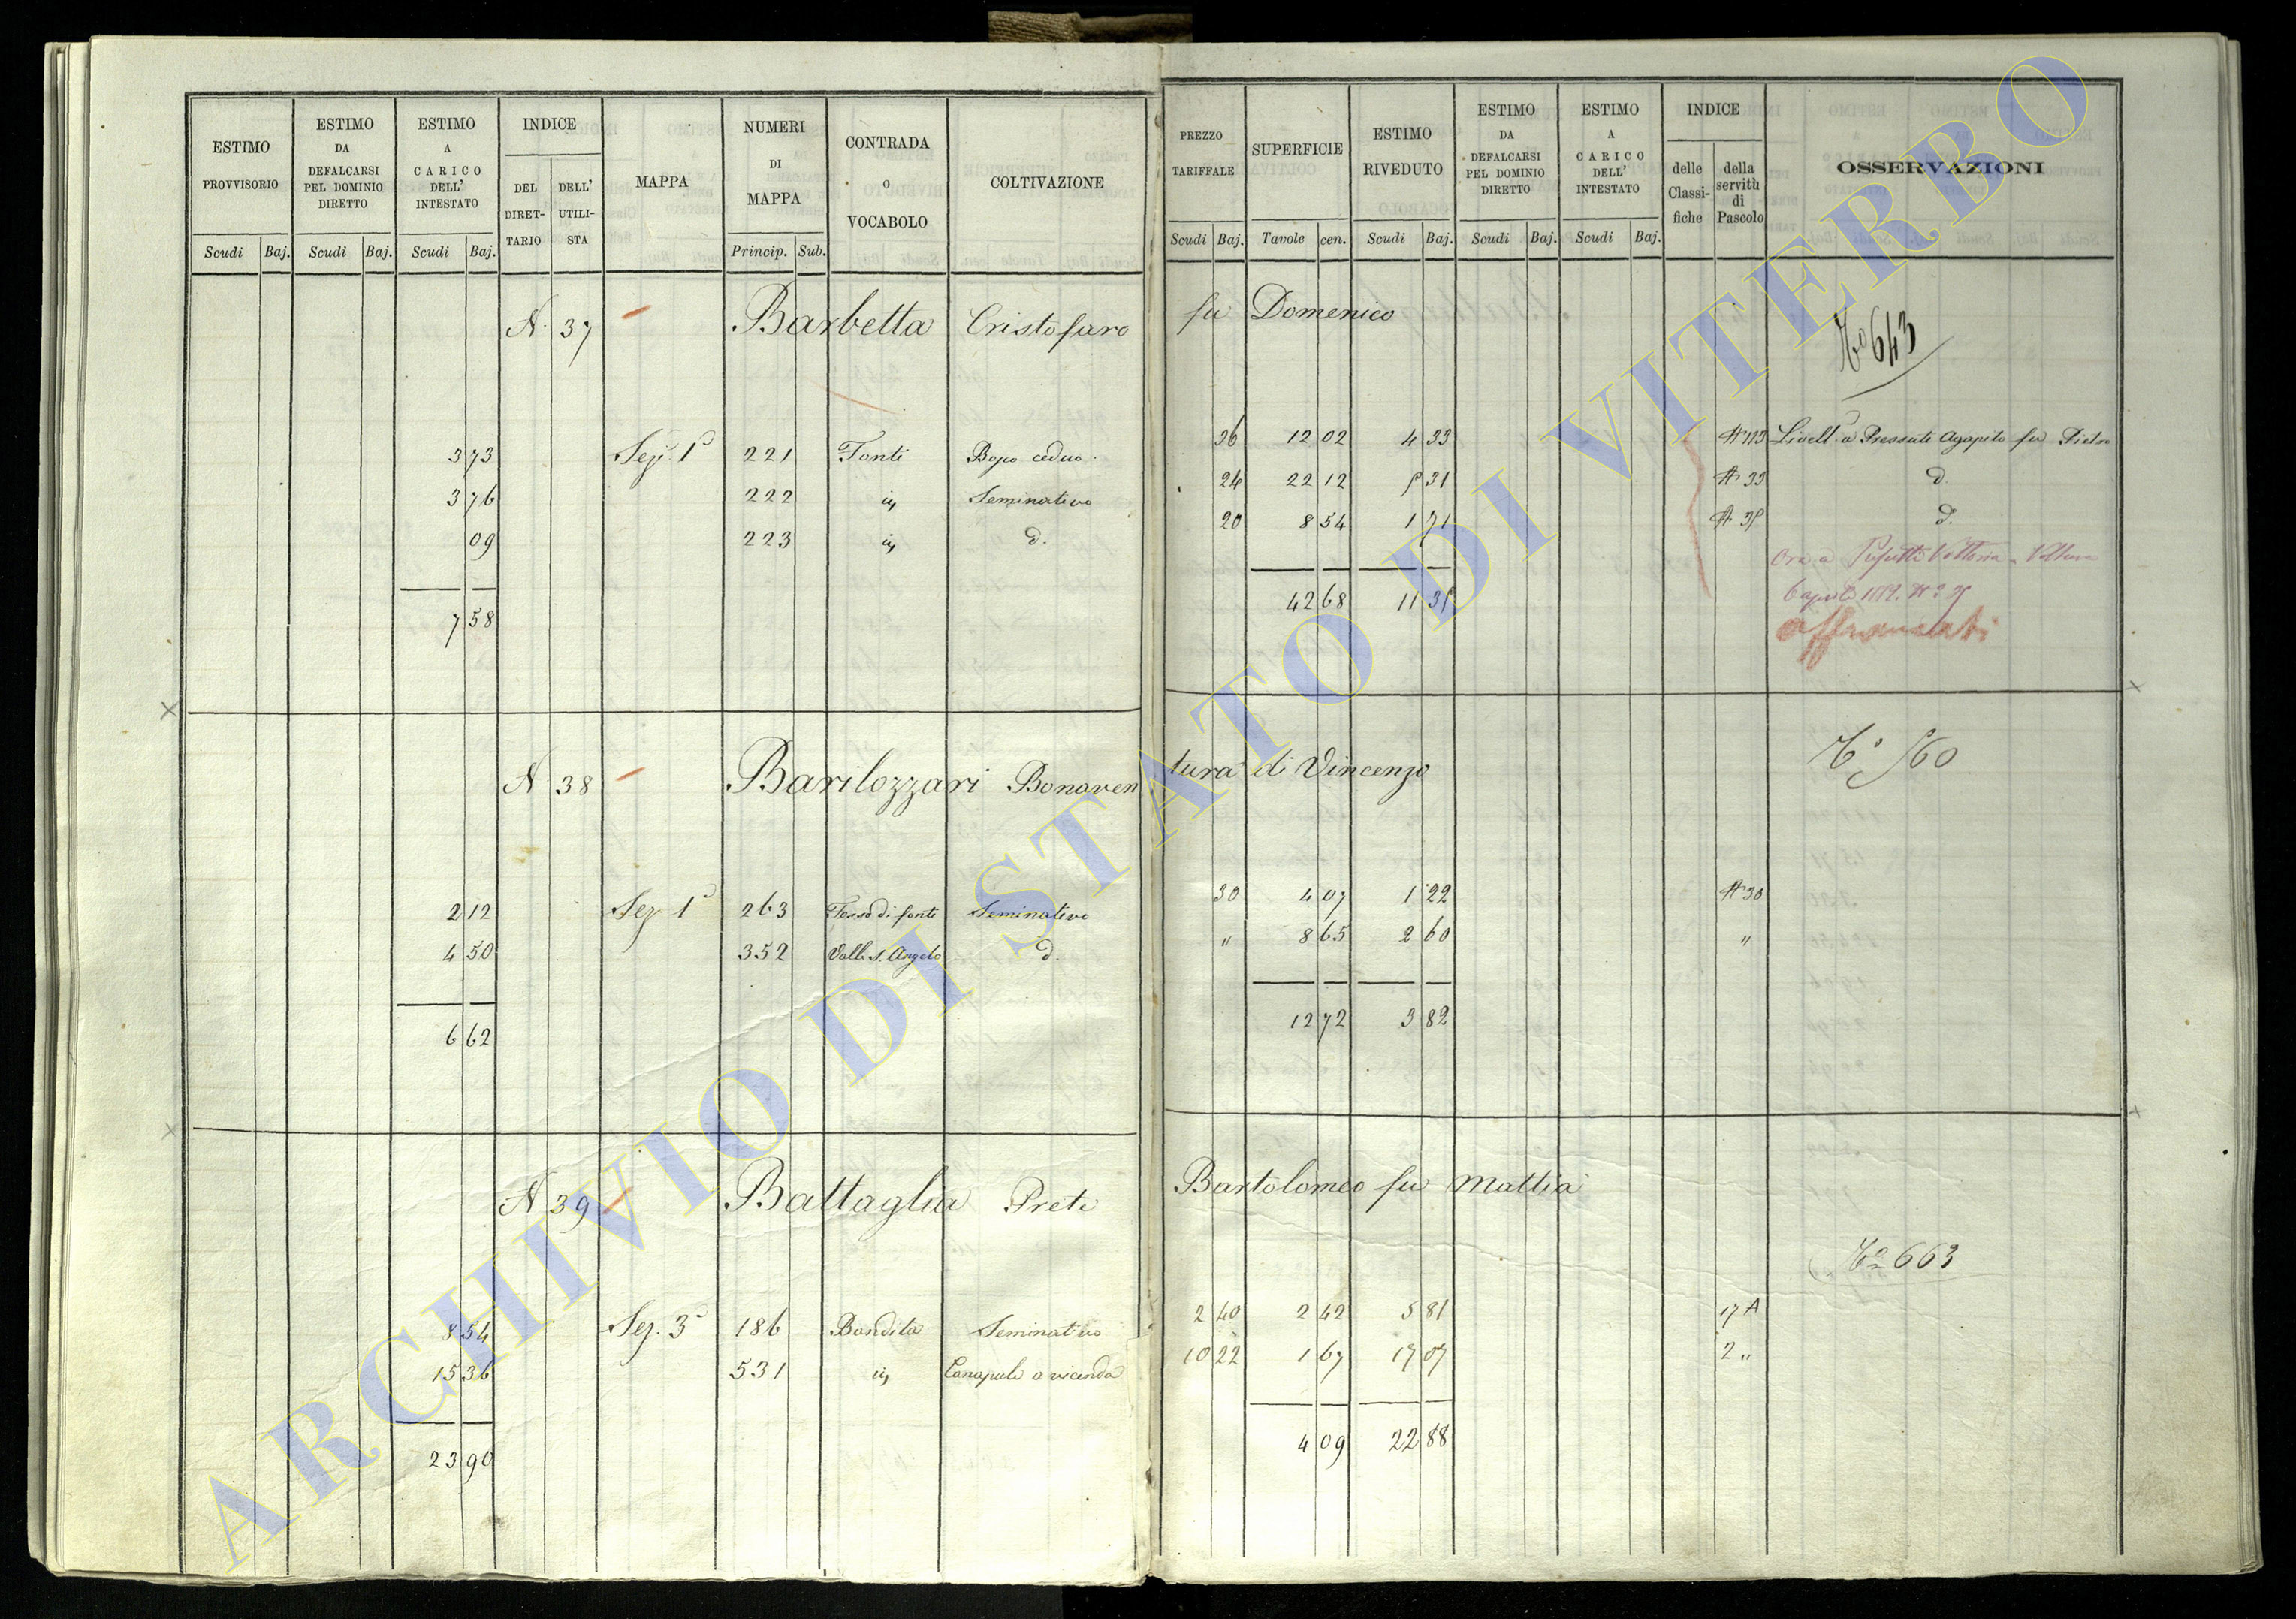 ESTIMO PROVVISORIO Scudi Baj.
ESTIMO DA DEFALCARSI PEL DOMINIO DIRETTO Scudi Baj.
ESTIMO A CARICO DELL' INTESTATO Scudi Baj.
INDICE DEL DIRET- TARIO DELL' UTILI- STA
MAPPA
NUMERI DI MAPPA Princip. Sub.
CONTRADA o VOCABOLO
COLTIVAZIONE
PREZZO TARIFFALE Scudi Baj.
SUPERFICIE Tavole cen.
ESTIMO RIVEDUTO Scudi Baj.
ESTIMO DA DEFALCARSI PEL DOMINIO DIRETTO Scudi Baj.
ESTIMO A CARICO DELL' INTESTATO Scudi Baj.
INDICE delle Classi- fiche della servitù di Pascolo
OSSERVAZIONI
N. 37 Barbetta Cristofaro fu Domenico
No 643
3 73 Sez. 1a 221 Fonti Bosco ceduo 36 12 02 4 33 Livell. a Pressuti Agapito fu Pietro
3 76 222 id Seminativo 24 22 12 5 31 A 33 d.
09 223 id d. 20 8 54 1 71 A 35 d.
Ora a Vittoria Voltura
7 58 42 68 11 35
affrancati
N 38 Barilozzari Bonaven tura di Vincenzo
No 560
2 12 Sez. 1a 263 Fosso di fonti Seminativo 30 4 07 1 22 A 30
4 50 352 Valle S. Angelo d. " 8 65 2 60 "
6 62 12 72 3 82
N 39 Battaglia Prete Bartolomeo fu Mattia
No 663
8 54 Sez. 3a 186 Bandita Seminativo 2 40 2 42 5 81 17 A
15 36 531 id Canapule a vicenda 10 22 1 67 17 07 2 "
23 90 4 09 22 88
ARCHIVIO DI STATO DI VITERBO